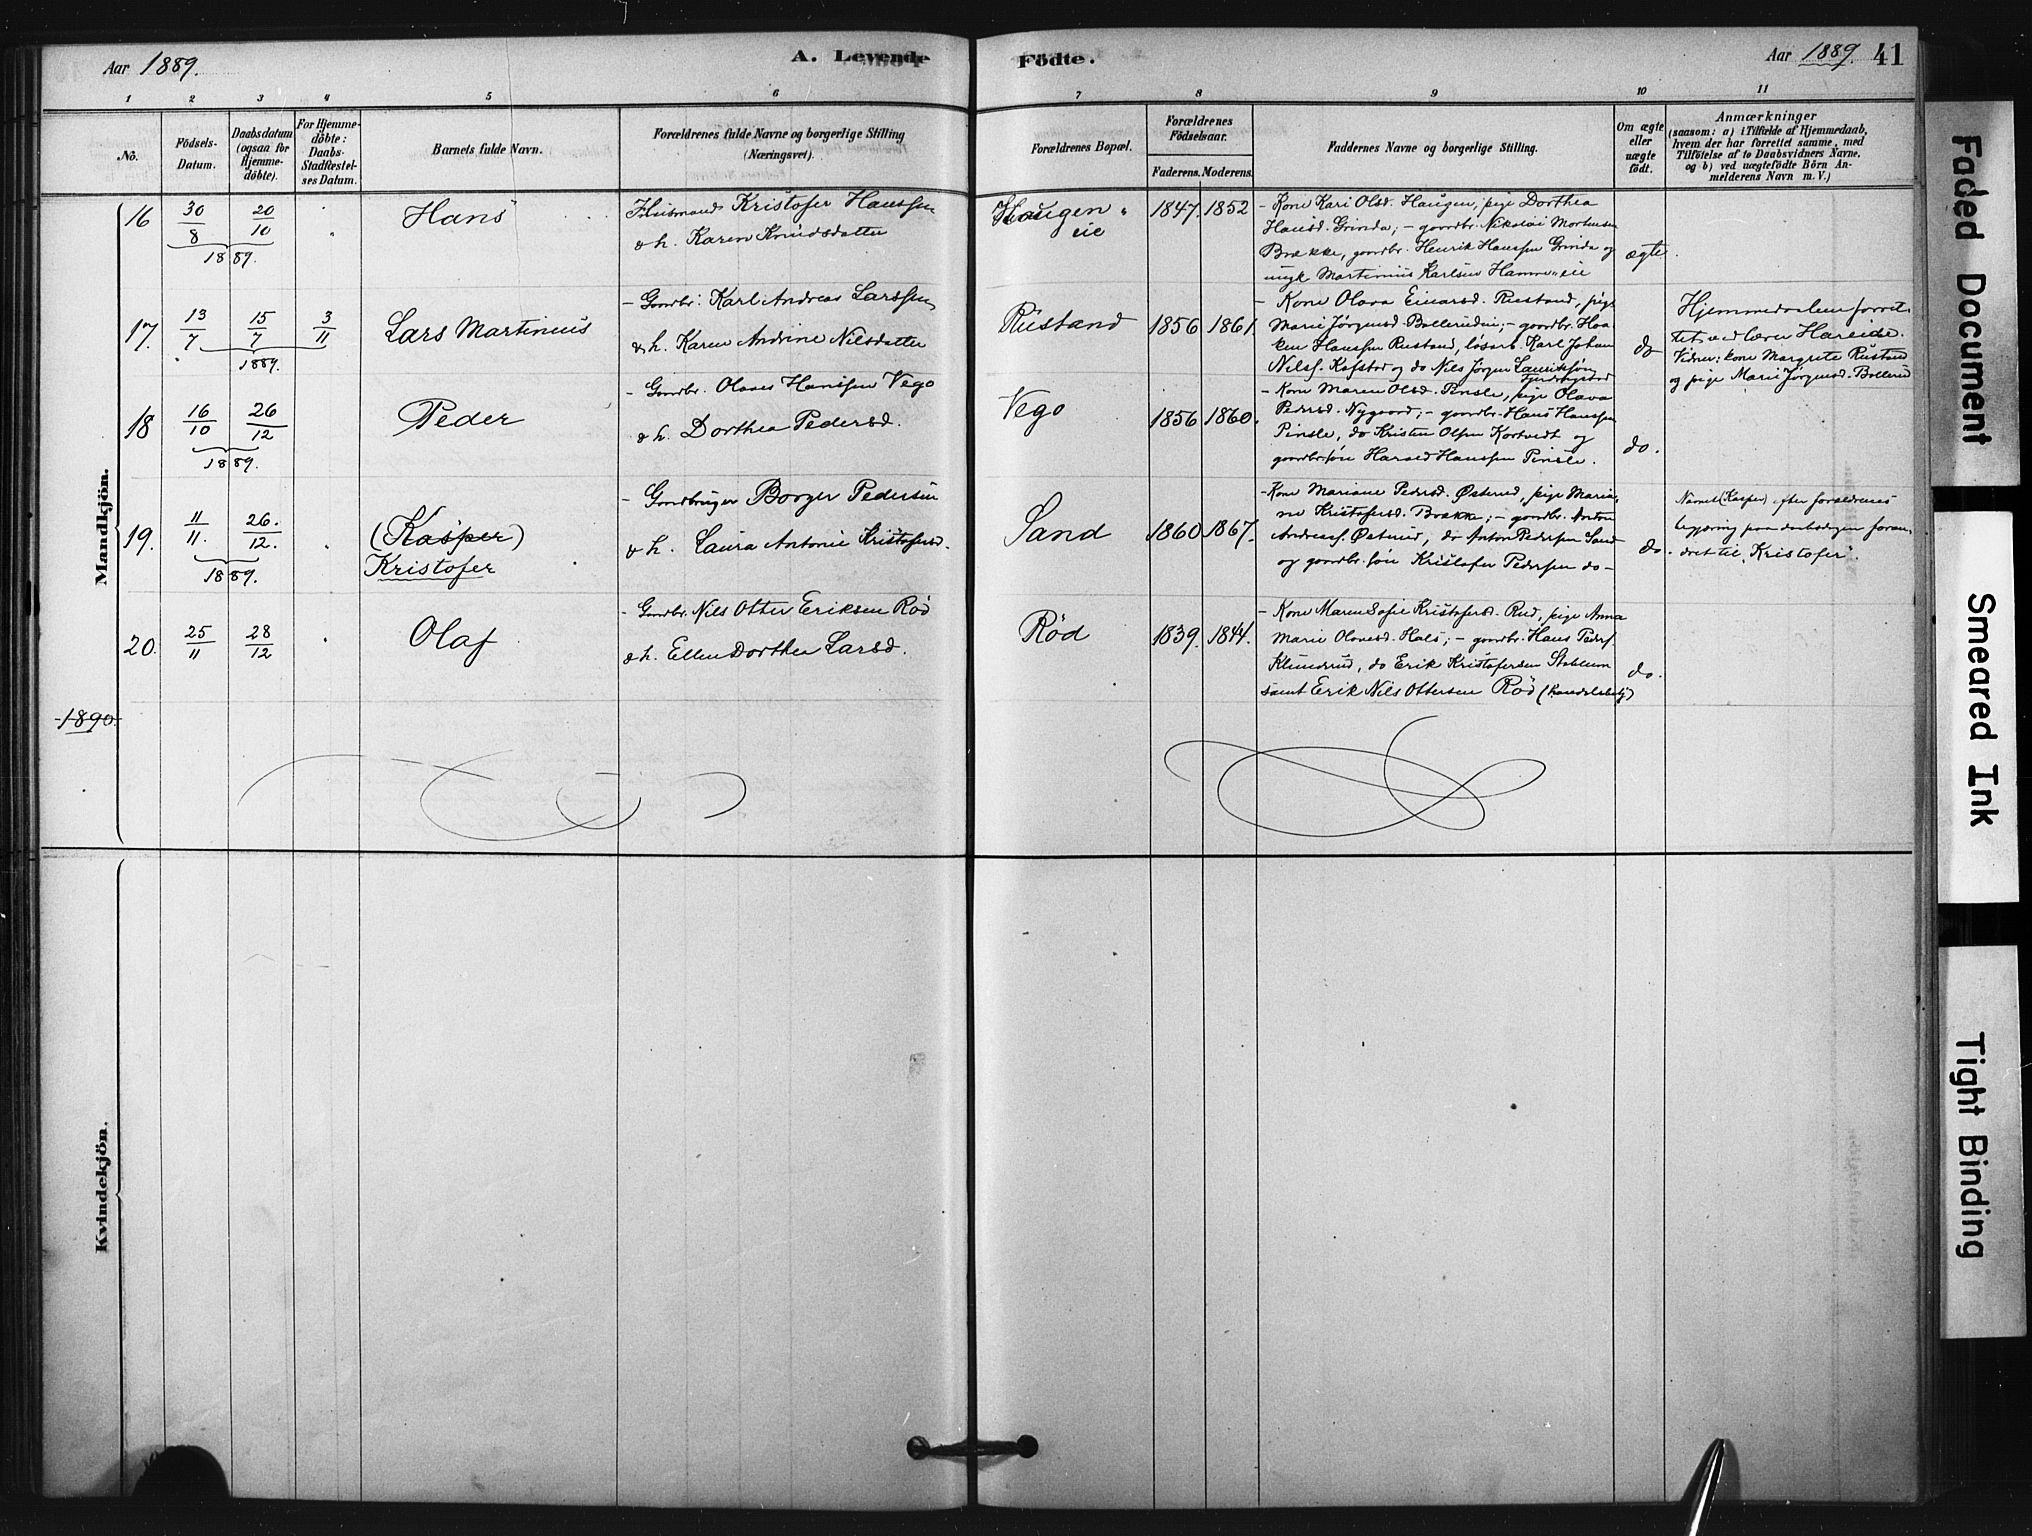 Aar 1889.
A. Levende
Födte.
Aar 1889. 41
1 2 3 4 5 6 7 8 9 10 11
No.
Födsels-
Datum.
Daabsdatum
(ogsaa for
Hjemme-
döbte).
For Hjemme-
döbte:
Daabs-
Stadfæstel-
ses Datum.
Barnets fulde Navn.
Forældrenes fulde Navne og borgerlige Stilling
(Næringsvei).
Forældrenes Bopæl.
Forældrenes
Födselsaar.
Faderens. Moderens.
Faddernes Navne og borgerlige Stilling.
Om ægte
eller
uægte
födt.
Anmærkninger
(saasom: a) i Tilfælde af Hjemmedaab,
hvem der har forrettet samme, med
Tilföielse af to Daabsvidners Navne,
og b) ved uægtefödte Börn An-
melderens Navn m. V.)
Mandkjön.
16
30/8 20/10
1889.
Hans
Husmand Kristofer Hanssen
& h. Karen Knudsdatter
Haugen
eie
1847. 1852
- Kone Kari Olsd. Haugen, pige Dorthea
Hansd. Grinda; - gaardbr. Nikolai Mortensen
Brække, gaardbr. Henrik Hanssen Grinda og
ungk. Martinius Karlsen Hamme eie
ægte.
17.
13/7 15/7 3/11
1889.
Lars Martinius
- Gaardbr. Karl Andreas Larssen
& h. Karen Andrine Nilsdatter
Rustand
1856 1861.
- Kone Olava Einarsd. Rustand, pige
Marie Jørgensd. Bollerud; - gaardbr. Haa-
ken Hanssen Rustand, løsarb. Karl Johan
Nilss. Kofstad og do Nils Jørgen Lauritsøn
do
Hjemmedaaben forret-
tet ved lærer Hareide.
Vidner: kone Margrete Rustand
og pige Marie Jørgensd. Bollerud
18
16/10 26/12
1889.
Peder
- Gaardbr. Olaves Hanssen Vego
& h. Dorthea Pedersd.
Vego
1856 1860.
- Kone Maren Olsd. Pinsle, pige Olava
Pedersd. Nygaard; - gaardbr. Hans Hanssen
Pinsle, do Kristen Olsen Kortvedt og
gaardbr.søn Harald Hanssen Pinsle.
do.
19.
11/11. 26./12.
1889.
(Kasper)
Kristofer
- Gaardbruger Borger Pedersen
& h. Laura Antonie Kristofersd.
Sand
1860 1867.
- Kone Mariane Pedersd. Østerud, pige Maria-
ne Kristofersd. Brække; - gaardbr. Anton
Andreass. Østerud, do Anton Pedersen Sand
og gaardbr.søn Kristofer Pedersen do -
do.
Navnet (Kasper) efter forældrenes
begjæring paa daabsdagen foran-
dret til "Kristofer".
20.
25/11 28/12
Olaf
- Gaardbr. Nils Otter Eriksen Rød
& h. Ellen Dorthea Larsd.
Rød
1839. 1844.
- Kone Maren Sofie Kristofersd. Rud, pige Anna
Marie Olavesd. Hals; - gaardbr. Hans Peders.
Klunderud, do Erik Kristofersen
samt Erik Nils Ottersen Rød (handelsbetj)
do.
1890.
Kvindekjön.
Faded Document
Smeared Ink
Tight Binding